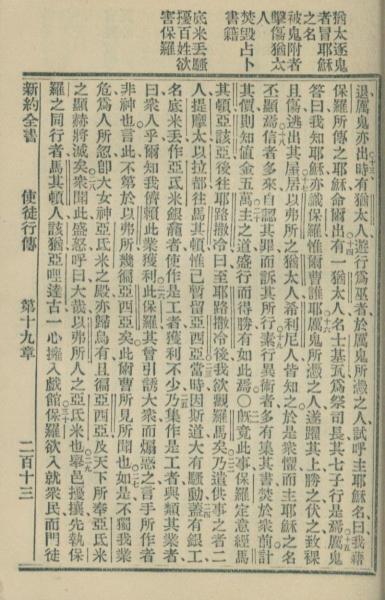 猶太逐鬼
者冒耶穌
之名
被鬼附者
擊傷猶太
人
焚毀占卜
書籍
底米丟騷
擾百姓欲
害保羅
退厲鬼亦出時有猶太人遊行爲巫者於厲鬼所憑之人試呼主耶穌名曰我藉
保羅所傳之耶穌命爾出有一猶太人名士基瓦爲祭司長其七子行是焉厲鬼
答曰我知耶穌亦識保羅惟爾曹誰耶厲鬼所憑之人遂躍其上勝之伏之致裸
且傷逃出其屋居以弗所之猶太人希利尼人皆知之於是衆懼而主耶穌之名
丕顯焉信者多來自認其罪而訴其所行素行異術者多有集其書焚於衆前計
其價則知値金五萬主之道盛行而得勝有如此焉〇旣竟此事保羅定意經馬
其頓亞該亞後往耶路撒冷曰至耶路撒冷後我欲觀羅馬矣乃遣供事之者二
人提摩太以拉都往馬其頓惟己暫留亞西亞當時因斯道大有騷動蓋有銀工
名底米丟作亞氐米銀龕者使作是工者獲利不少乃集作是工者與類其業者
曰衆人乎爾知我儕賴此業獲利此保羅其曾引誘大衆而煽惑之言手所作者
非神也言此不第於以弗所幾徧亞西亞矣此爾曹所見所聞也如是不獨我業
危爲人所忽卽大女神亞氐米之殿亦歸烏有且徧亞西亞及天下所奉亞氐米
之顯赫將滅矣衆聞此盛怒呼曰大哉以弗所人之亞氐米也舉邑擾攘先執保
羅之同行者馬其頓人該猶亞哩達古一心擁入戲館保羅欲入就衆民而門徒
新約全書 使徒行傳 第十九章 二百十三